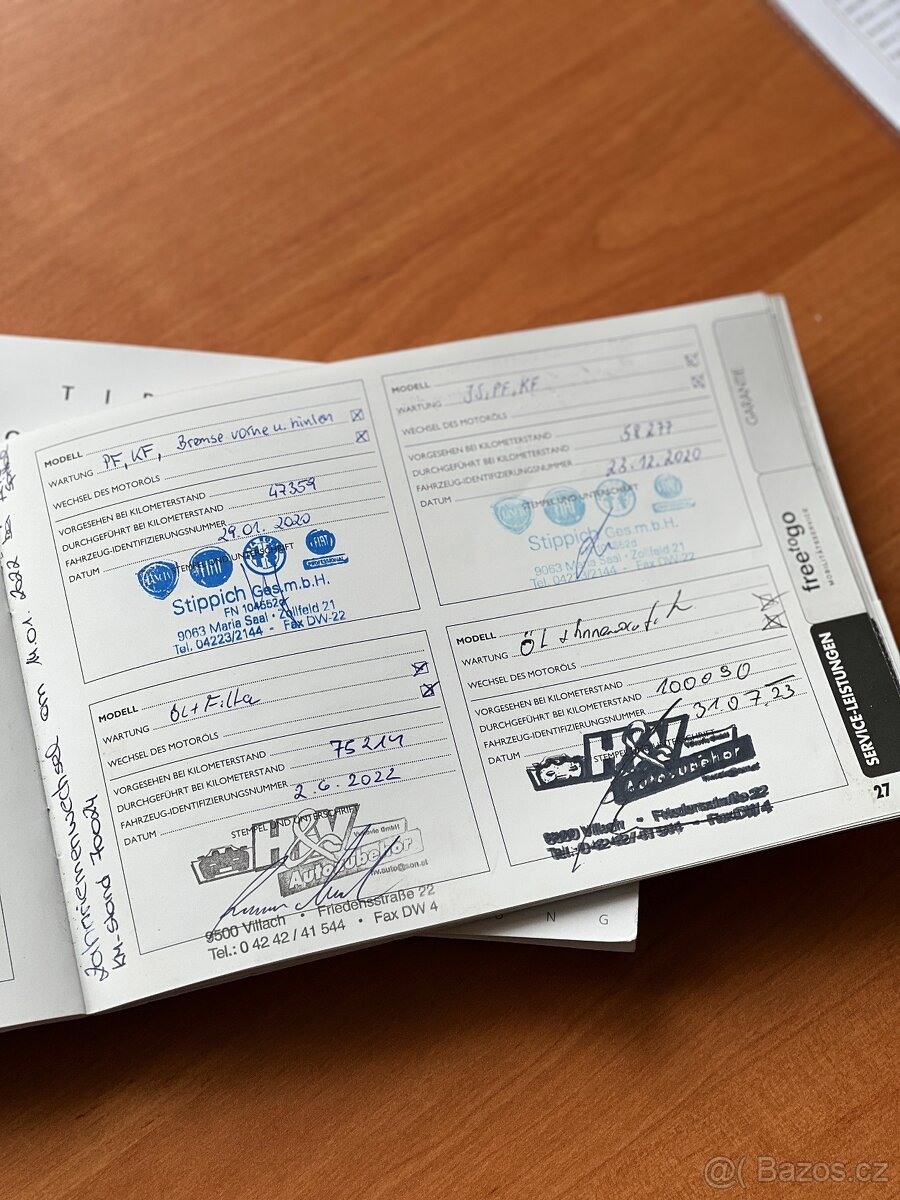 TIP
Zahnriemenwechsel am 11.01.2022
KM-Stand 70024
MODELL
WARTUNG PF, KF, Bremse vorne u. hinten
WECHSEL DES MOTORÖLS
VORGESEHEN BEI KILOMETERSTAND
DURCHGEFÜHRT BEI KILOMETERSTAND 47359
FAHRZEUG-IDENTIFIZIERUNGSNUMMER
DATUM 29.01.2020
STEMPEL UND UNTERSCHRIFT
LANCIA FIAT FIAT
PROFESSIONAL
Stippich Ges.m.b.H.
FN 104552d
9063 Maria Saal • Zollfeld 21
Tel. 04223/2144 - Fax DW-22
MODELL
WARTUNG JS, PF, KF
WECHSEL DES MOTORÖLS
VORGESEHEN BEI KILOMETERSTAND
DURCHGEFÜHRT BEI KILOMETERSTAND 58277
FAHRZEUG-IDENTIFIZIERUNGSNUMMER
DATUM 23.12.2020
STEMPEL UND UNTERSCHRIFT
FIAT
Stippich Ges.m.b.H.
9063 Maria Saal • Zollfeld 21
Tel. 04223/2144 - Fax DW-22
MODELL
WARTUNG Öl+Filter
WECHSEL DES MOTORÖLS
VORGESEHEN BEI KILOMETERSTAND
DURCHGEFÜHRT BEI KILOMETERSTAND 75214
FAHRZEUG-IDENTIFIZIERUNGSNUMMER
DATUM 2.6.2022
STEMPEL UND UNTERSCHRIFT
H&V
Autozubehör
9500 Villach • Friedensstraße 22
Tel.: 0 42 42 / 41 544 • Fax DW 4
MODELL
WARTUNG ÖL +
WECHSEL DES MOTORÖLS
VORGESEHEN BEI KILOMETERSTAND
DURCHGEFÜHRT BEI KILOMETERSTAND 100090
FAHRZEUG-IDENTIFIZIERUNGSNUMMER
DATUM 31.07.23
STEMPEL UND UNTERSCHRIFT
H&V
Autozubehör
9500 Villach • Friedensstraße 22
Tel.: 0 42 42 / 41 544 • Fax DW 4
GARANTIE
freetogo
MOBILITÄTSSERVICE
SERVICE-LEISTUNGEN
27
UNG
@( Bazos.cz